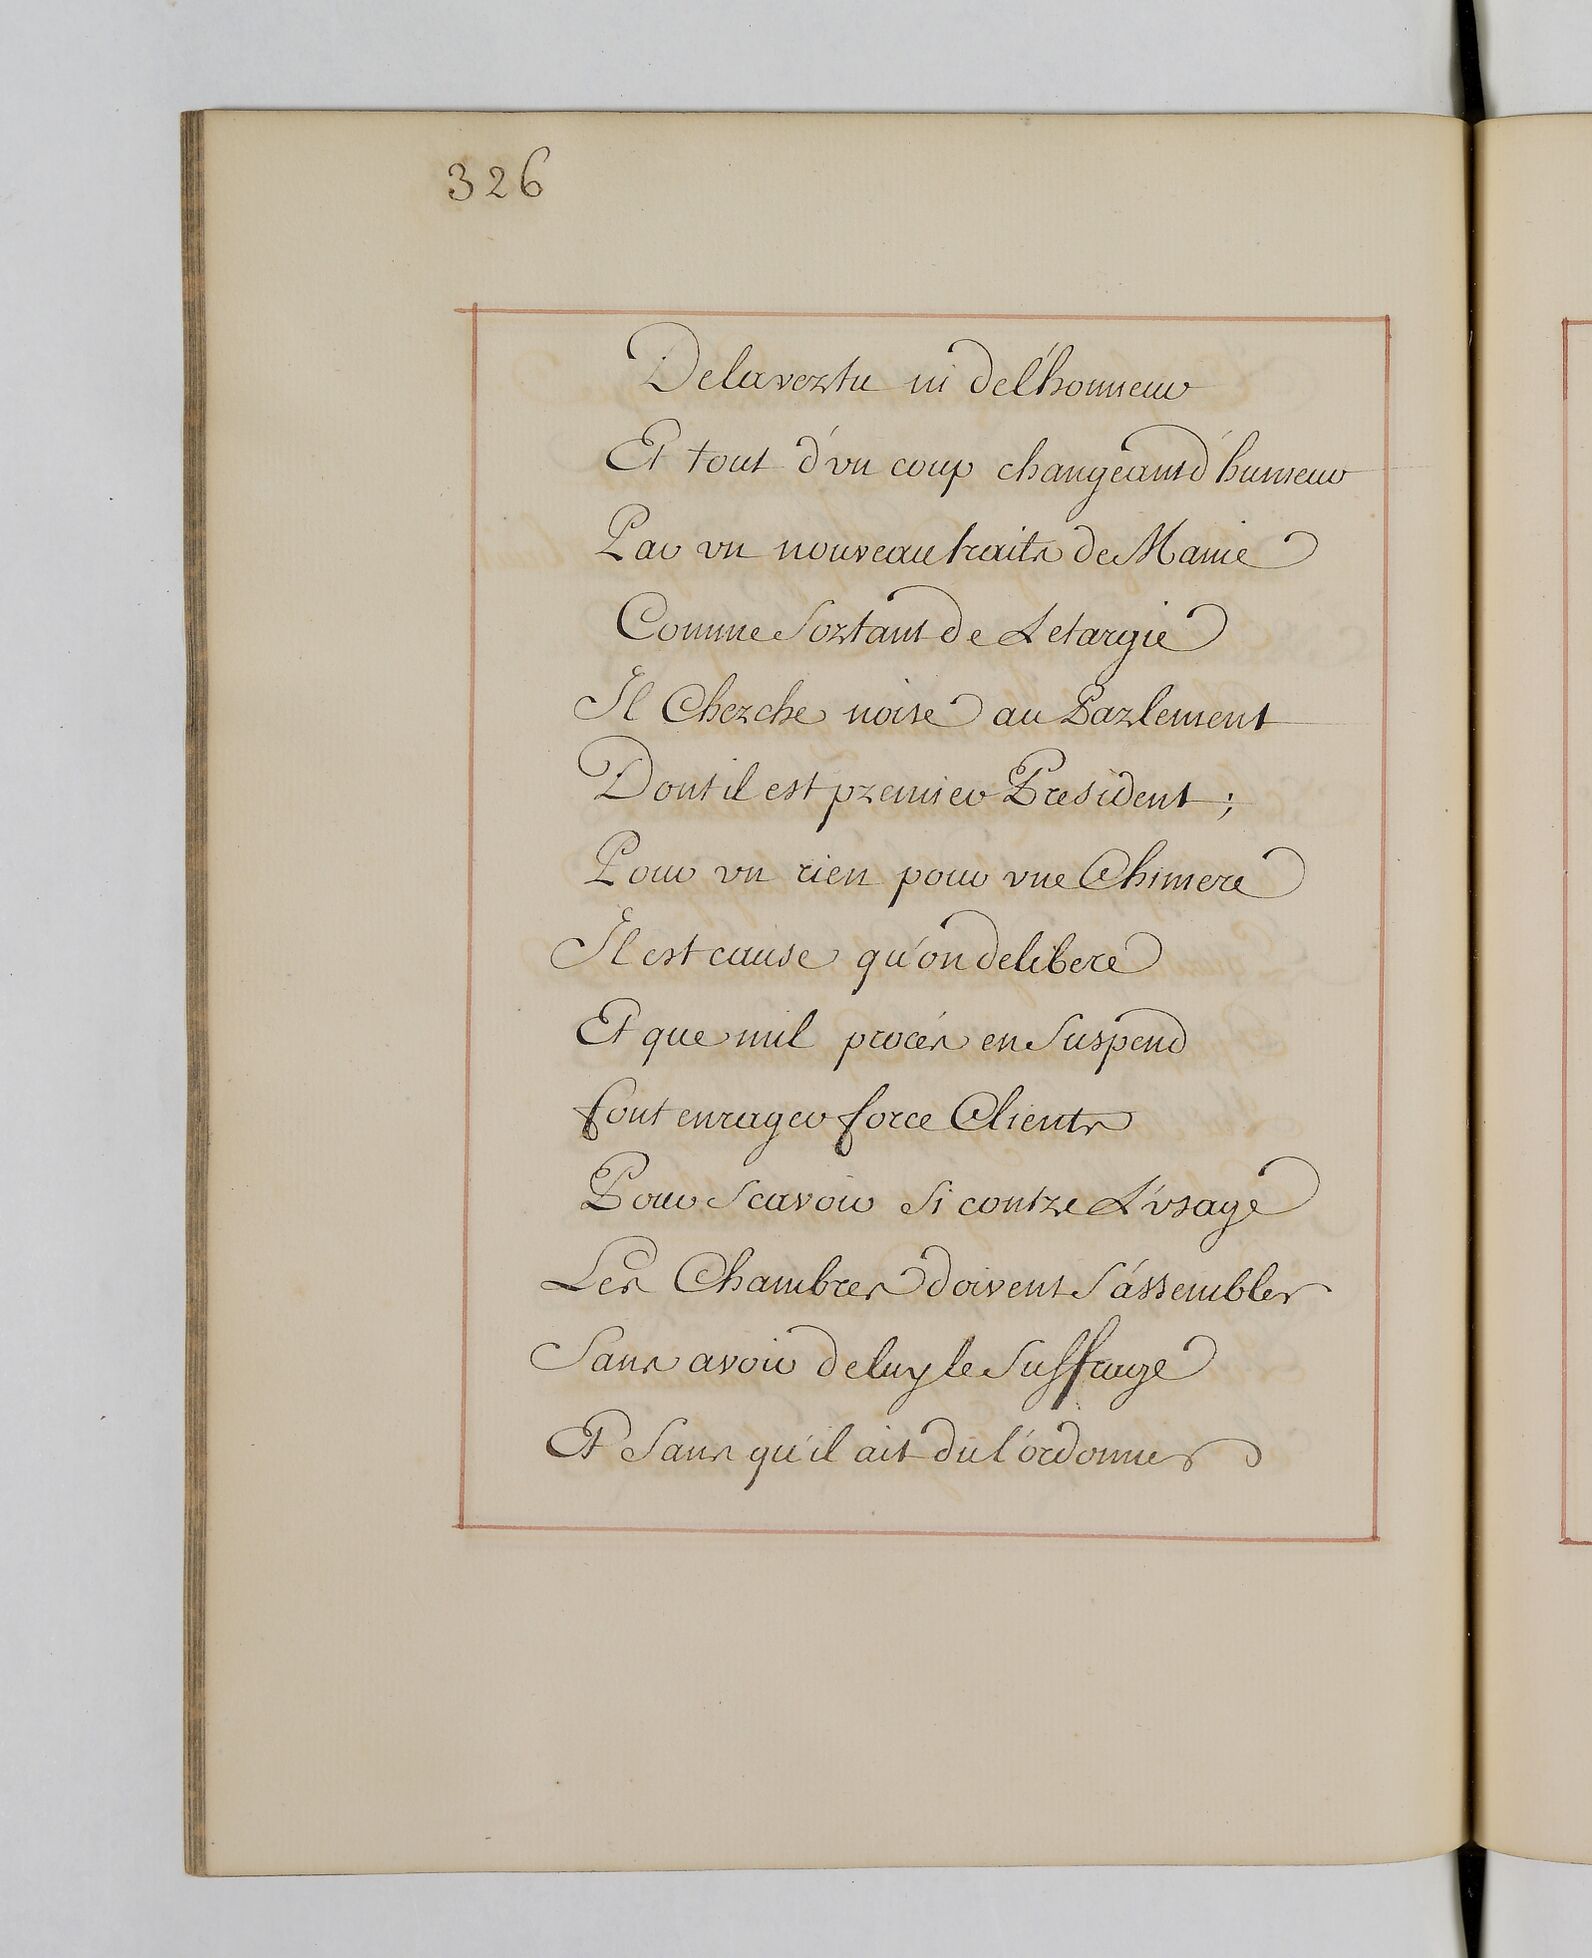 326
De la vertu ni de l'honneur
Et tout d'vn coup changeant d'humeur
Par vn nouveau traits de Manie
Comme Sortant de Letargie
Il Cherche noise au Parlement
Dont il est premier President ;
Pour vn rien pour vne Chimere
Il est cause qu'on delibere
Et que mil procés en Suspend
font enrager force Clients
Pour Scavoir Si contre L'vsage
Les Chambres doivent S'assembler
Sans avoir de luy le Suffrage
Et Sans qu'il ait du l'ordonner